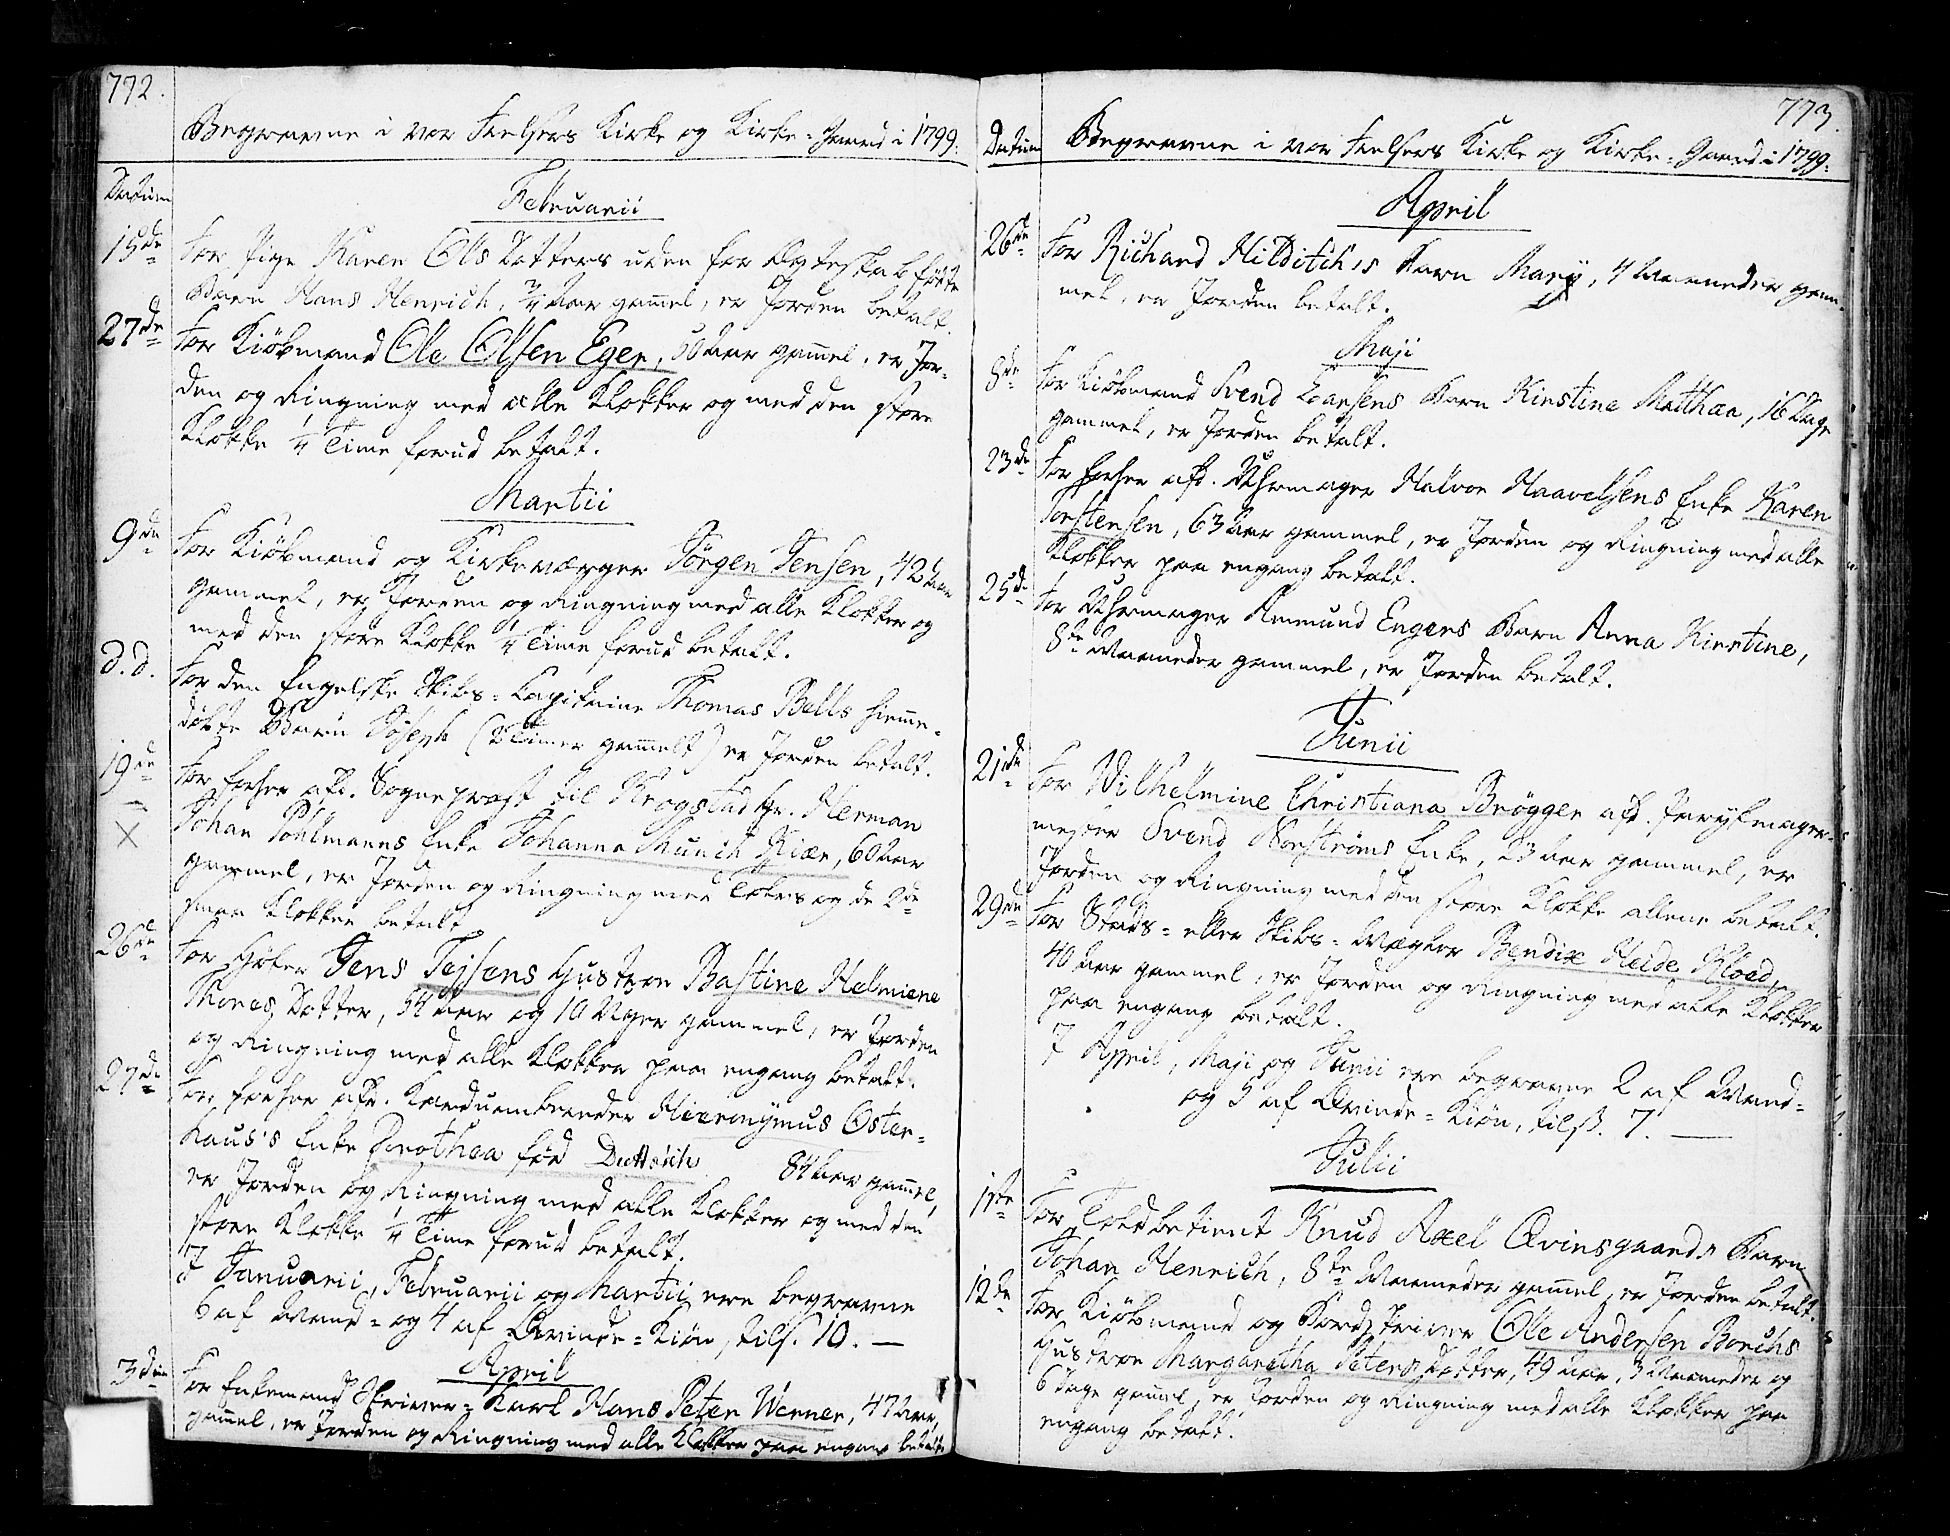 772.
Begravne i vor Frelsers Kirke og Kirke-Gaard i 1799.
Datum
Februarii
15de For Pige Karen Ols Datters uden for Ægteskab fødte
Barn Hans Henrich, 3/4 Aar gam̄el, er Jorden betalt.
27de For Kiöbmand Ole Olsen Eger, 50 Aar gam̄el, er Jor-
den og Ringning med alle Klokker og med den store
Klokke 1/4 Time forud betalt.
Martii
9de For Kiöbmand og Kirkeværger Jörgen Jensen, 42 Aar
gammel, er Jorden og Ringning med alle Klokker og
med den store Klokke 1/4 Time forud betalt.
d.d. For den Engelske Skibs-Capitaine Thomas Bells hiem̄e-
döbte Barn Joseph (2 Timer gam̄elt) er Jorden betalt.
19de For forhen afd. Sognepræst til Krogstad Hr. Herman
X Johan Pöhlmanns Enke Johanna Munch Kiær, 60 Aar
gammel, er Jorden og Ringning med og de 2de
smaa Klokker betalt
26de For Jens Tejsens Hustroe Bastine Helmiene
Thores Datter, 54 Aar og 10 Uger gammel, er Jorden
og Ringning med alle Klokker paa engang betalt.
27de For forhen afd. Karduanbereder Hieronymus Oster-
haus's Enke Dorothea föd 84 Aar gam̄el,
er Jorden og Ringning med alle Klokker og med den
store Klokke 1/4 Time forud betalt.
I Januarii, Februarii og Martii ere begravne
6 af Mand- og 4 af Qvinde-Kiön, tils. 10. —
April
3die For Enkemand Skriver-Karl Hans Peter Werner, 47 Aar
gam̄el, er Jorden og Ringning med alle Klokker paa engang betalt
773.
Datum Begravne i vor Frelsers Kirke og Kirke-Gaard i 1799.
April
26de For Richard Hilditch's Barn Mary, 4 Maaneder gam-
mel, er Jorden betalt.
Maji
8de For Kiöbmand Svend Larsens Barn Kirstine Matthea, 16 Dage
gammel, er Jorden betalt.
23de For forhen afd. Uhrmager Halvor Haavelsens Enke Karen
Torstensen, 63 Aar gammel, er Jorden og Ringning med alle
Klokker paa engang betalt.
25de For Uhrmager Ammund Engers Barn Anna Kirstine,
8te Maaneder gammel, er Jorden betalt.
Junii
21de For Wilhelmine Christiana Brögger afd. Parykmager-
mester Svend Norströms Enke, 23 Aar gammel, er
Jorden og Ringning med den store Klokke allene betalt.
29de For Stads- eller Skibs-Mægler Bendix Heide Kload,
40 Aar gammel, er Jorden og Ringning med alle Klokker
paa engang betalt.
I April, Maji og Junii ere begravne 2 af Mand-
og 5 af Qvinde-Kiön, tils. 7. —
Julii
1ste For Toldbetient Knud Axel Qvinsgaards Barn
Johan Henrich, 8te Maaneder gam̄el, er Jorden betalt.
12de For Kiöbmand og Ole Andersen Borchs
Hustroe Margaretha Peters Datter, 49 Aar, 3 Maaneder og
6 Dage gam̄el, er Jorden og Ringning med alle Klokker paa
engang betalt.